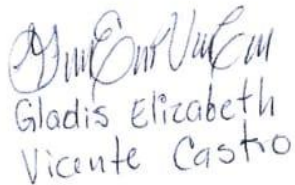 Gladis Elizabeth
Vicente Castro